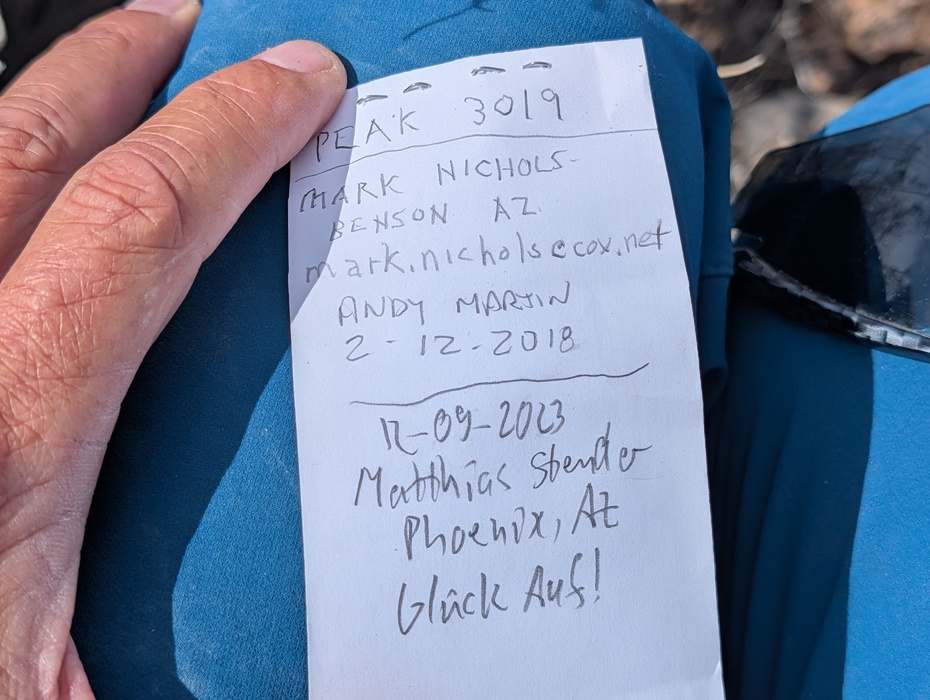 PEAK 3019
MARK NICHOLS
BENSON AZ
mark.nichols@cox.net
ANDY MARTIN
2-12-2018
12-09-2023
Matthias Stender
Phoenix, AZ
Glück Auf!